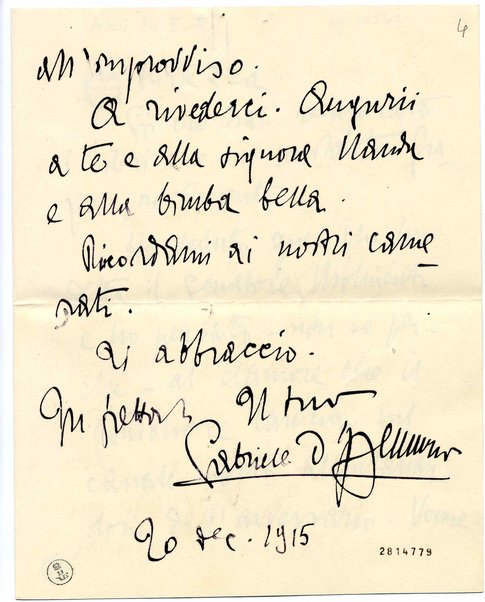 4
all'improvviso.
A rivederci. Augurii
a te e alla signora Nanda
e alla bimba bella.
Ricordami ai nostri came
rati.
Ti abbraccio.
In fretta Il tuo
Gabriele d'Annunzio
20 dec. 1915
2814779